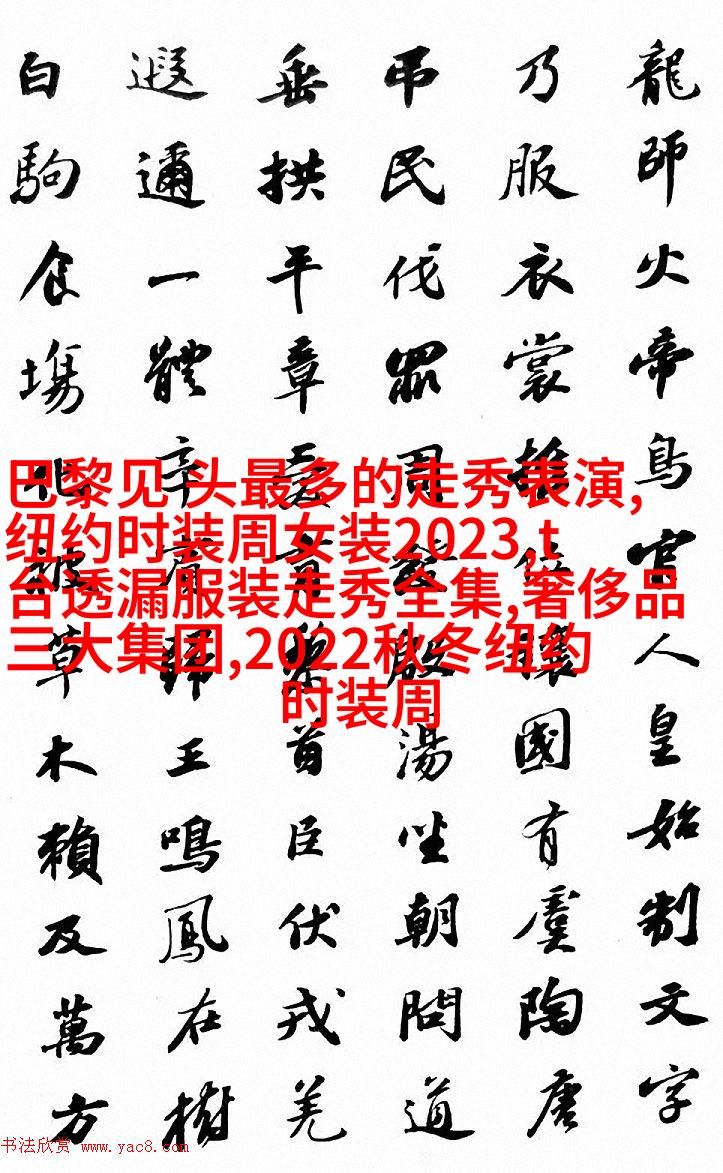 龍師火帝鳥官人皇始制文字
乃服衣裳推位讓國有虞陶唐
吊民伐罪周發殷湯坐朝問道
垂拱平章愛育黎首臣伏戎羌
遐邇一體率賓歸王鳴鳳在樹
白駒食場化被草木賴及萬方
巴黎见 头最多的走秀表演,
纽约时装周女装2023,t
台透漏服装走秀全集,奢侈品
三大集团,2022秋冬纽约
时装周
书法欣赏 www.yac8.com